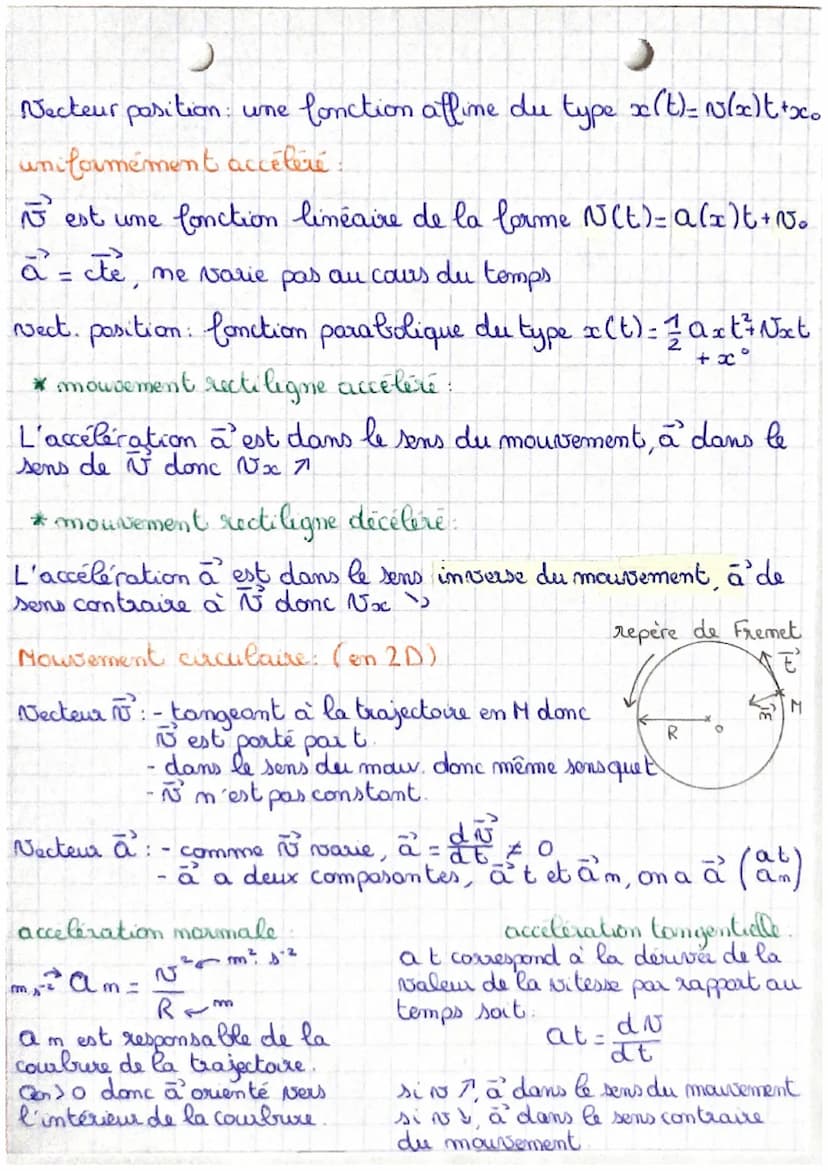 Vecteur position : une fonction affine du type x(t) = v(x)t + x₀
uniformément accéléré :
v⃗ est une fonction linéaire de la forme V(t) = a(x)t + v₀
a⃗ = cte⃗, ne varie pas au cours du temps
vect. position : fonction parabolique du type x(t) = 1/2 axt² + Vxt
+ x°
* mouvement rectiligne accéléré :
L'accélération a⃗ est dans le sens du mouvement, a⃗ dans le
sens de v⃗ donc Vx ↗
* mouvement rectiligne décéléré :
L'accélération a⃗ est dans le sens inverse du mouvement, a⃗ de
sens contraire à v⃗ donc Vx ↘
repère de Frenet
Mouvement circulaire : (en 2D)
t⃗
M
n⃗
R
o
Vecteur v⃗ : - tangeant à la trajectoire en M donc
v⃗ est porté par t.
- dans le sens du mouv. donc même sens que t
- v⃗ n'est pas constant.
Vecteur a⃗ : - comme v⃗ varie, a⃗ = dv⃗/dt ≠ 0
- a⃗ a deux composantes, a⃗t et a⃗n, on a a⃗ (at an)
accélération normale :
m.s⁻² a⃗n = V² ← m².s⁻² / R ← m
an est responsable de la
courbure de la trajectoire.
an > 0 donc a⃗ orienté vers
l'intérieur de la courbure.
accélération tangentielle.
at correspond à la dérivée de la
valeur de la vitesse par rapport au
temps soit :
at = dV/dt
si v ↗, a⃗ dans le sens du mouvement
si v ↘, a⃗ dans le sens contraire
du mouvement